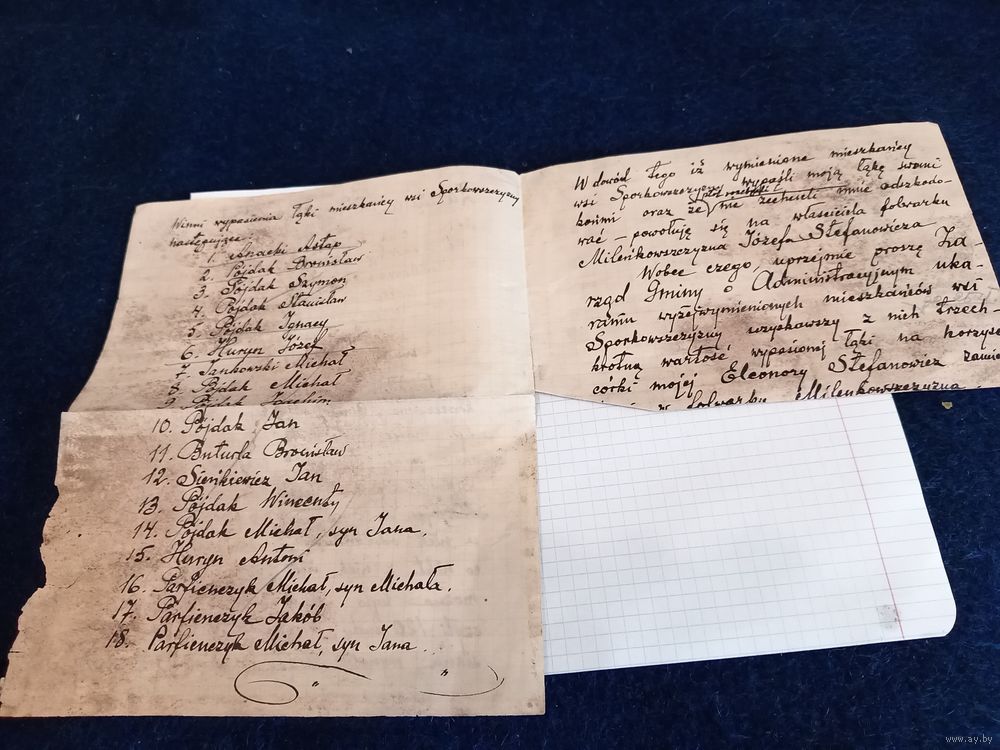 Winni wypasienia łąki mieszkańcy wsi Sporkowszczyzny
następujące:
1. Astap
2. Pójdak Bronisław
3. Pójdak Szymon
4. Pójdak Stanisław
5. Pójdak Ignacy
6. Huryn Józef
7. Jankowski Michał
8. Pójdak Michał
9. Pójdak Joachim
10. Pójdak Jan
11. Bronisław
12. Sieńkiewicz Jan
13. Pójdak Wincenty
14. Pójdak Michał, syn Jana.
15. Huryn Antoni
16. Parfienczyk Michał, syn Michała.
17. Parfienczyk Jakób
18. Parfienczyk Michał, syn Jana.
W dowód tego iż wymienione mieszkańcy
wsi Sporkowszczyzny wypaśli moją łąkę swami
końmi oraz że nie zechcieli mnie odszkodo-
wać – powołuję się na właściciela folwarku
Mileńkowszczyzna Józefa Stefanowicza
Wobec czego, uprzejmie proszę Za-
rząd Gminy o Administracyjnym uka-
raniu wyżejwymienionych mieszkańców wsi
Sporkowszczyzny uzyskawszy z nich trzech-
krotną wartość wypasionej łąki na korzyść
córki mojej Eleonory Stefanowicz zamie
w folwarku Mileńkowszczyzna
www.ay.by